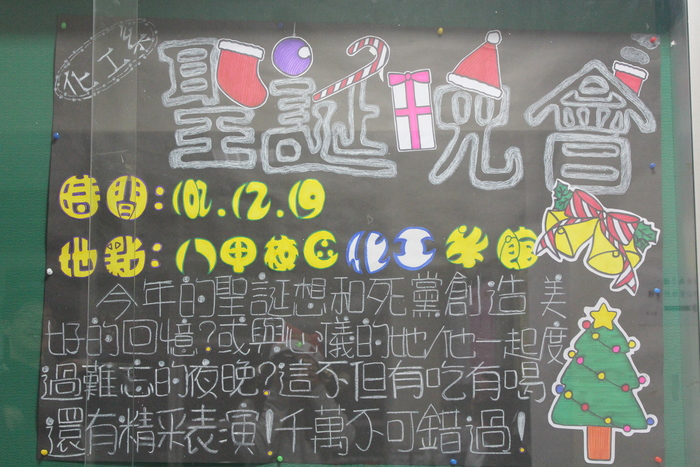 化工系
聖誕晚會
時間：102.12.19
地點：八甲校區化工系館
今年的聖誕想和死黨創造美
好的回憶？或與心儀的她/他一起度
過難忘的夜晚？這不但有吃有喝
還有精采表演！千萬不可錯過！